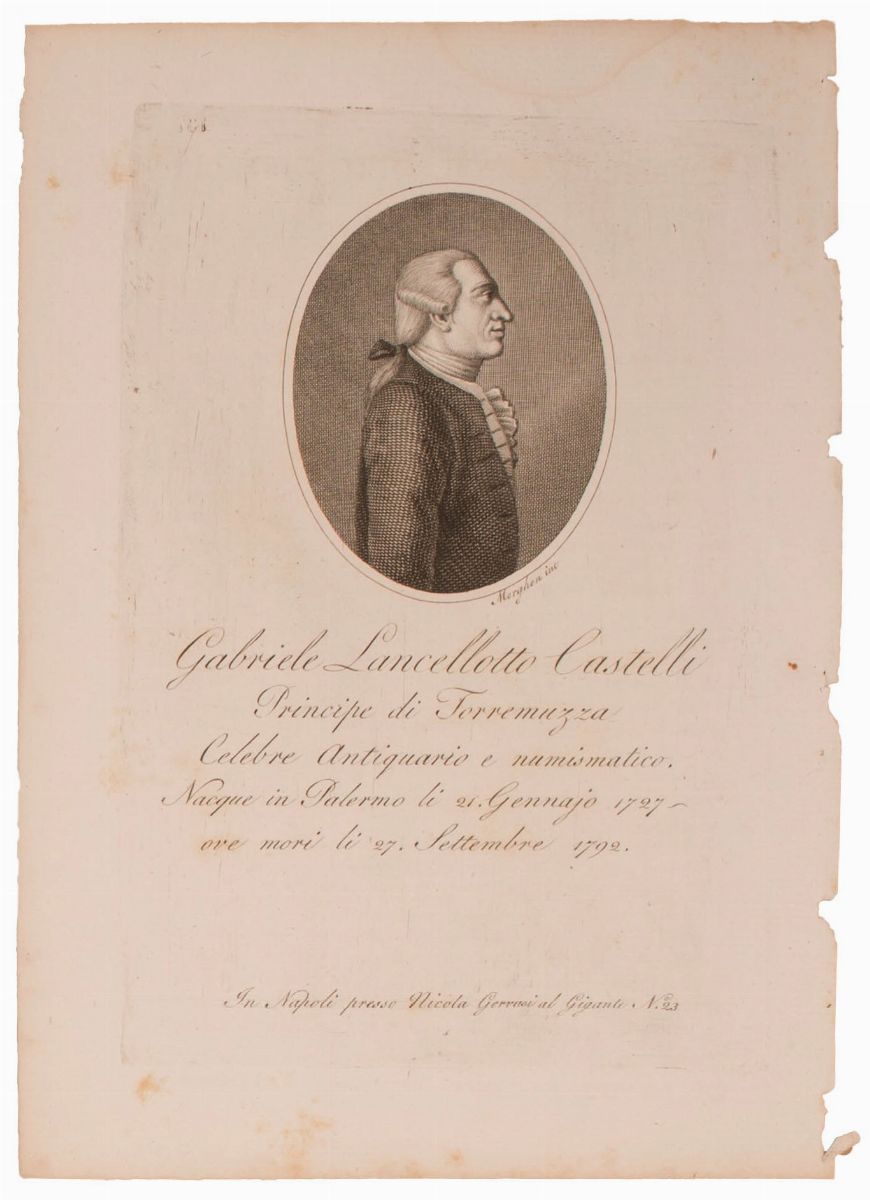 Morghen inc
Gabriele Lancellotto Castelli
Principe di Torremuzza
Celebre Antiquario e numismatico.
Nacque in Palermo li 21. Gennajo 1727
ove mori li 27. Settembre 1792.
In Napoli presso Nicola Gervasi al Gigante N.º 23